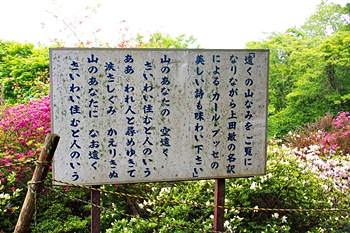 遠くの山なみを一覧に
なりながら上田敏の名訳
によるカール・ブッセの
美しい詩も味わい下さい
山のあなたの 空遠く
さいわい住むと人のいう
ああ われ人と尋めゆきて
涙さしぐみ かえりきぬ
山のあなたに なお遠く
さいわい住むと人のいう